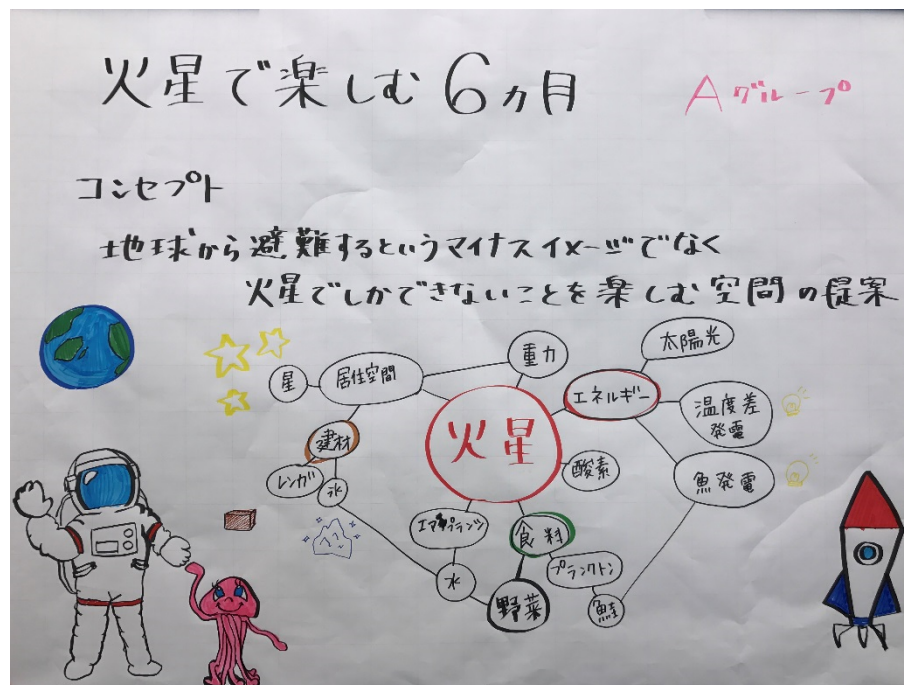 火星で楽しむ6ヵ月
Aグループ
コンセプト
地球から避難するというマイナスイメージでなく
火星でしかできないことを楽しむ空間の提案
星
居住空間
重力
太陽光
エネルギー
温度差
発電
建材
火星
酸素
魚発電
レンガ
氷
エアプランツ
食料
プランクトン
水
野菜
鮭